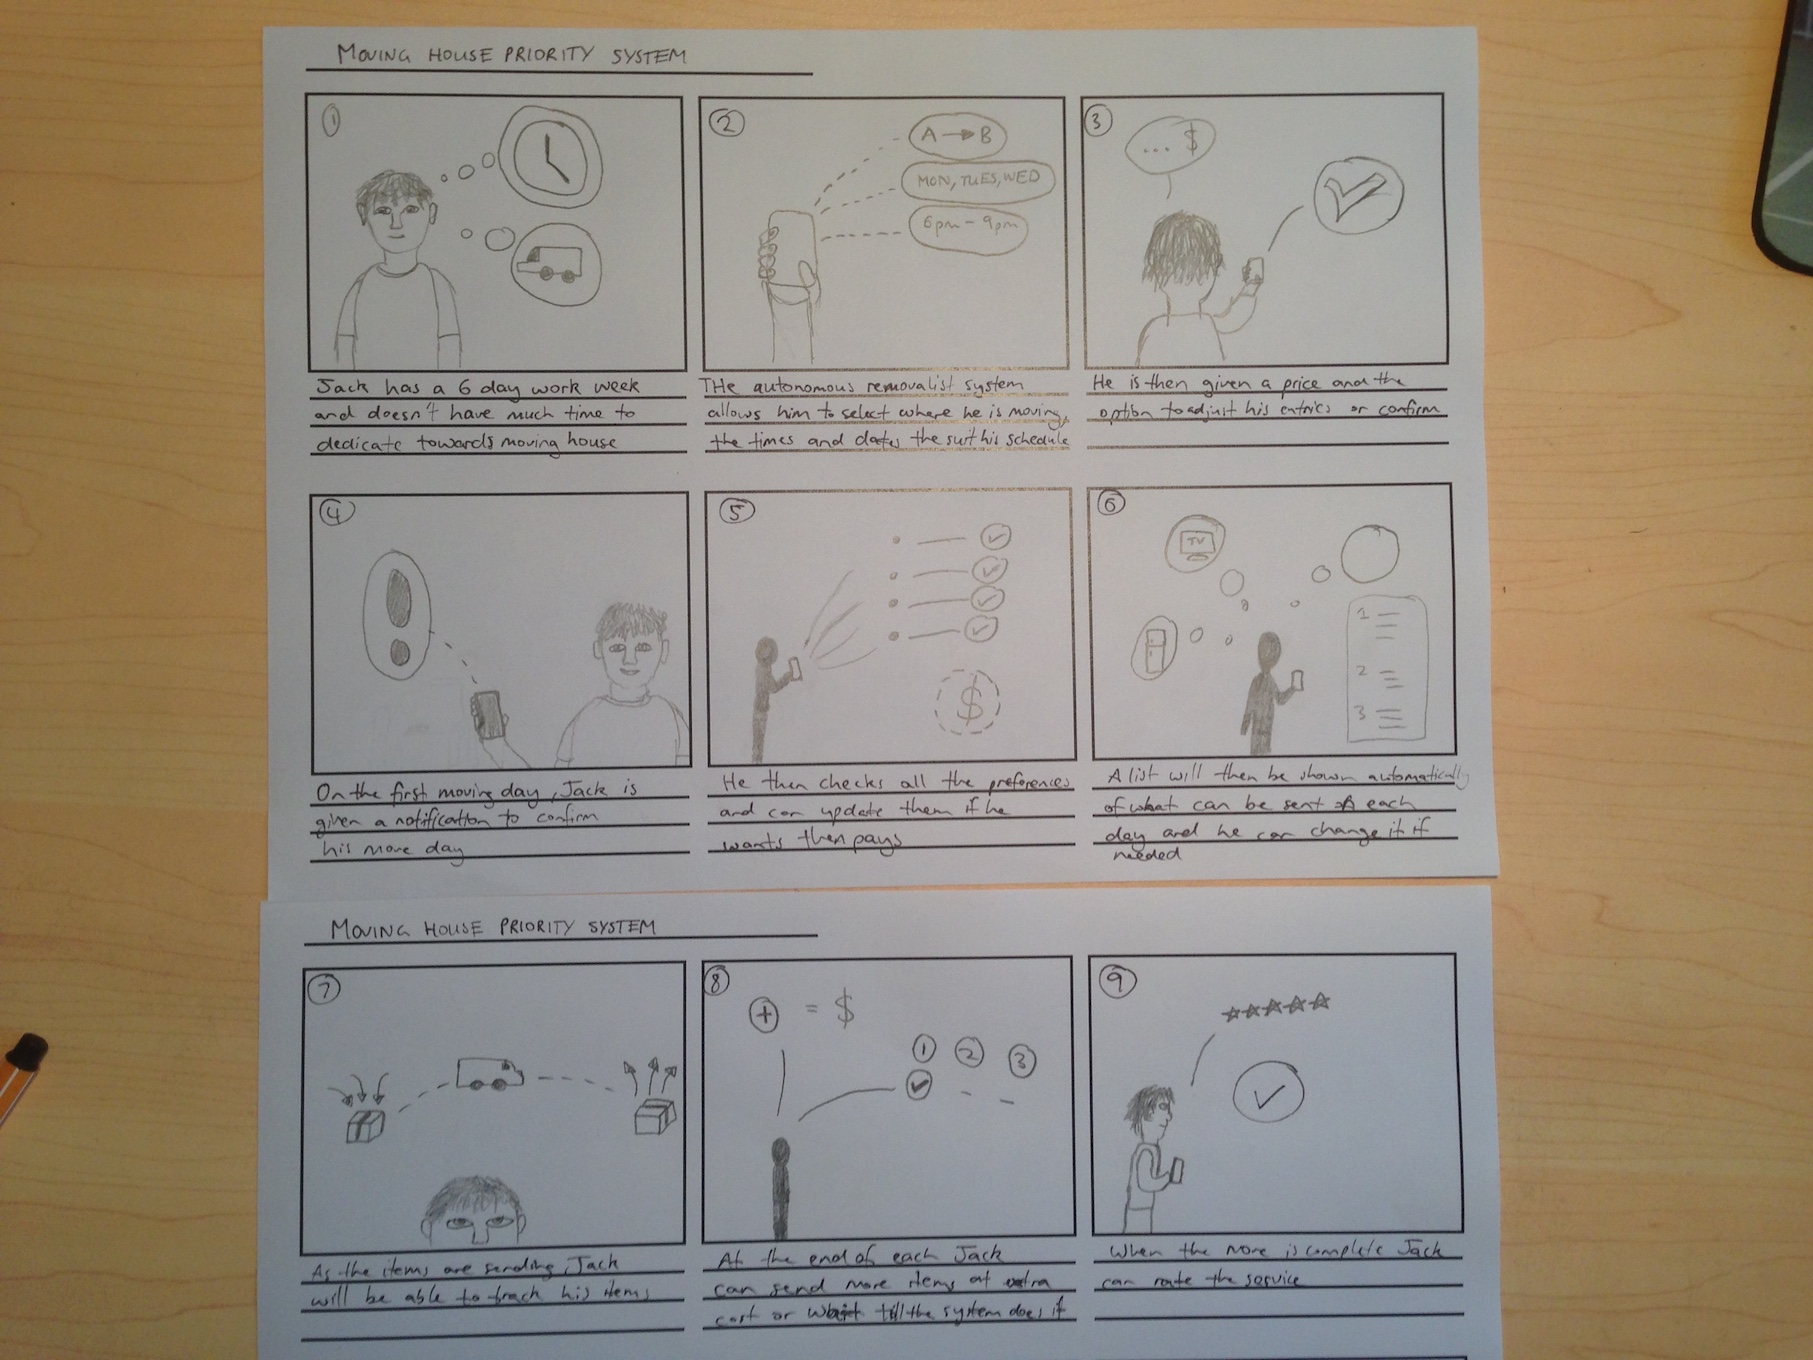 MOVING HOUSE PRIORITY SYSTEM
1
Jack has a 6 day work week
and doesn't have much time to
dedicate towards moving house
2
A → B
MON, TUES, WED
6pm - 9pm
THe autonomous removalist system
allows him to select where he is moving,
the times and dates the suit his schedule
3
... $
He is then given a price and the
option to adjust his entries or confirm
4
On the first moving day, Jack is
given a notification to confirm
his move day
5
$
He then checks all the preferences
and can update them if he
wants then pays
6
TV
1
2
3
A list will then be shown automatically
of what can be sent each
day and he can change it if
needed
MOVING HOUSE PRIORITY SYSTEM
7
As the items are sending, Jack
will be able to track his items
8
+ = $
1 2 3
At the end of each Jack
can send more items at extra
cost or wait till the system does it
9
When the move is complete Jack
can rate the service